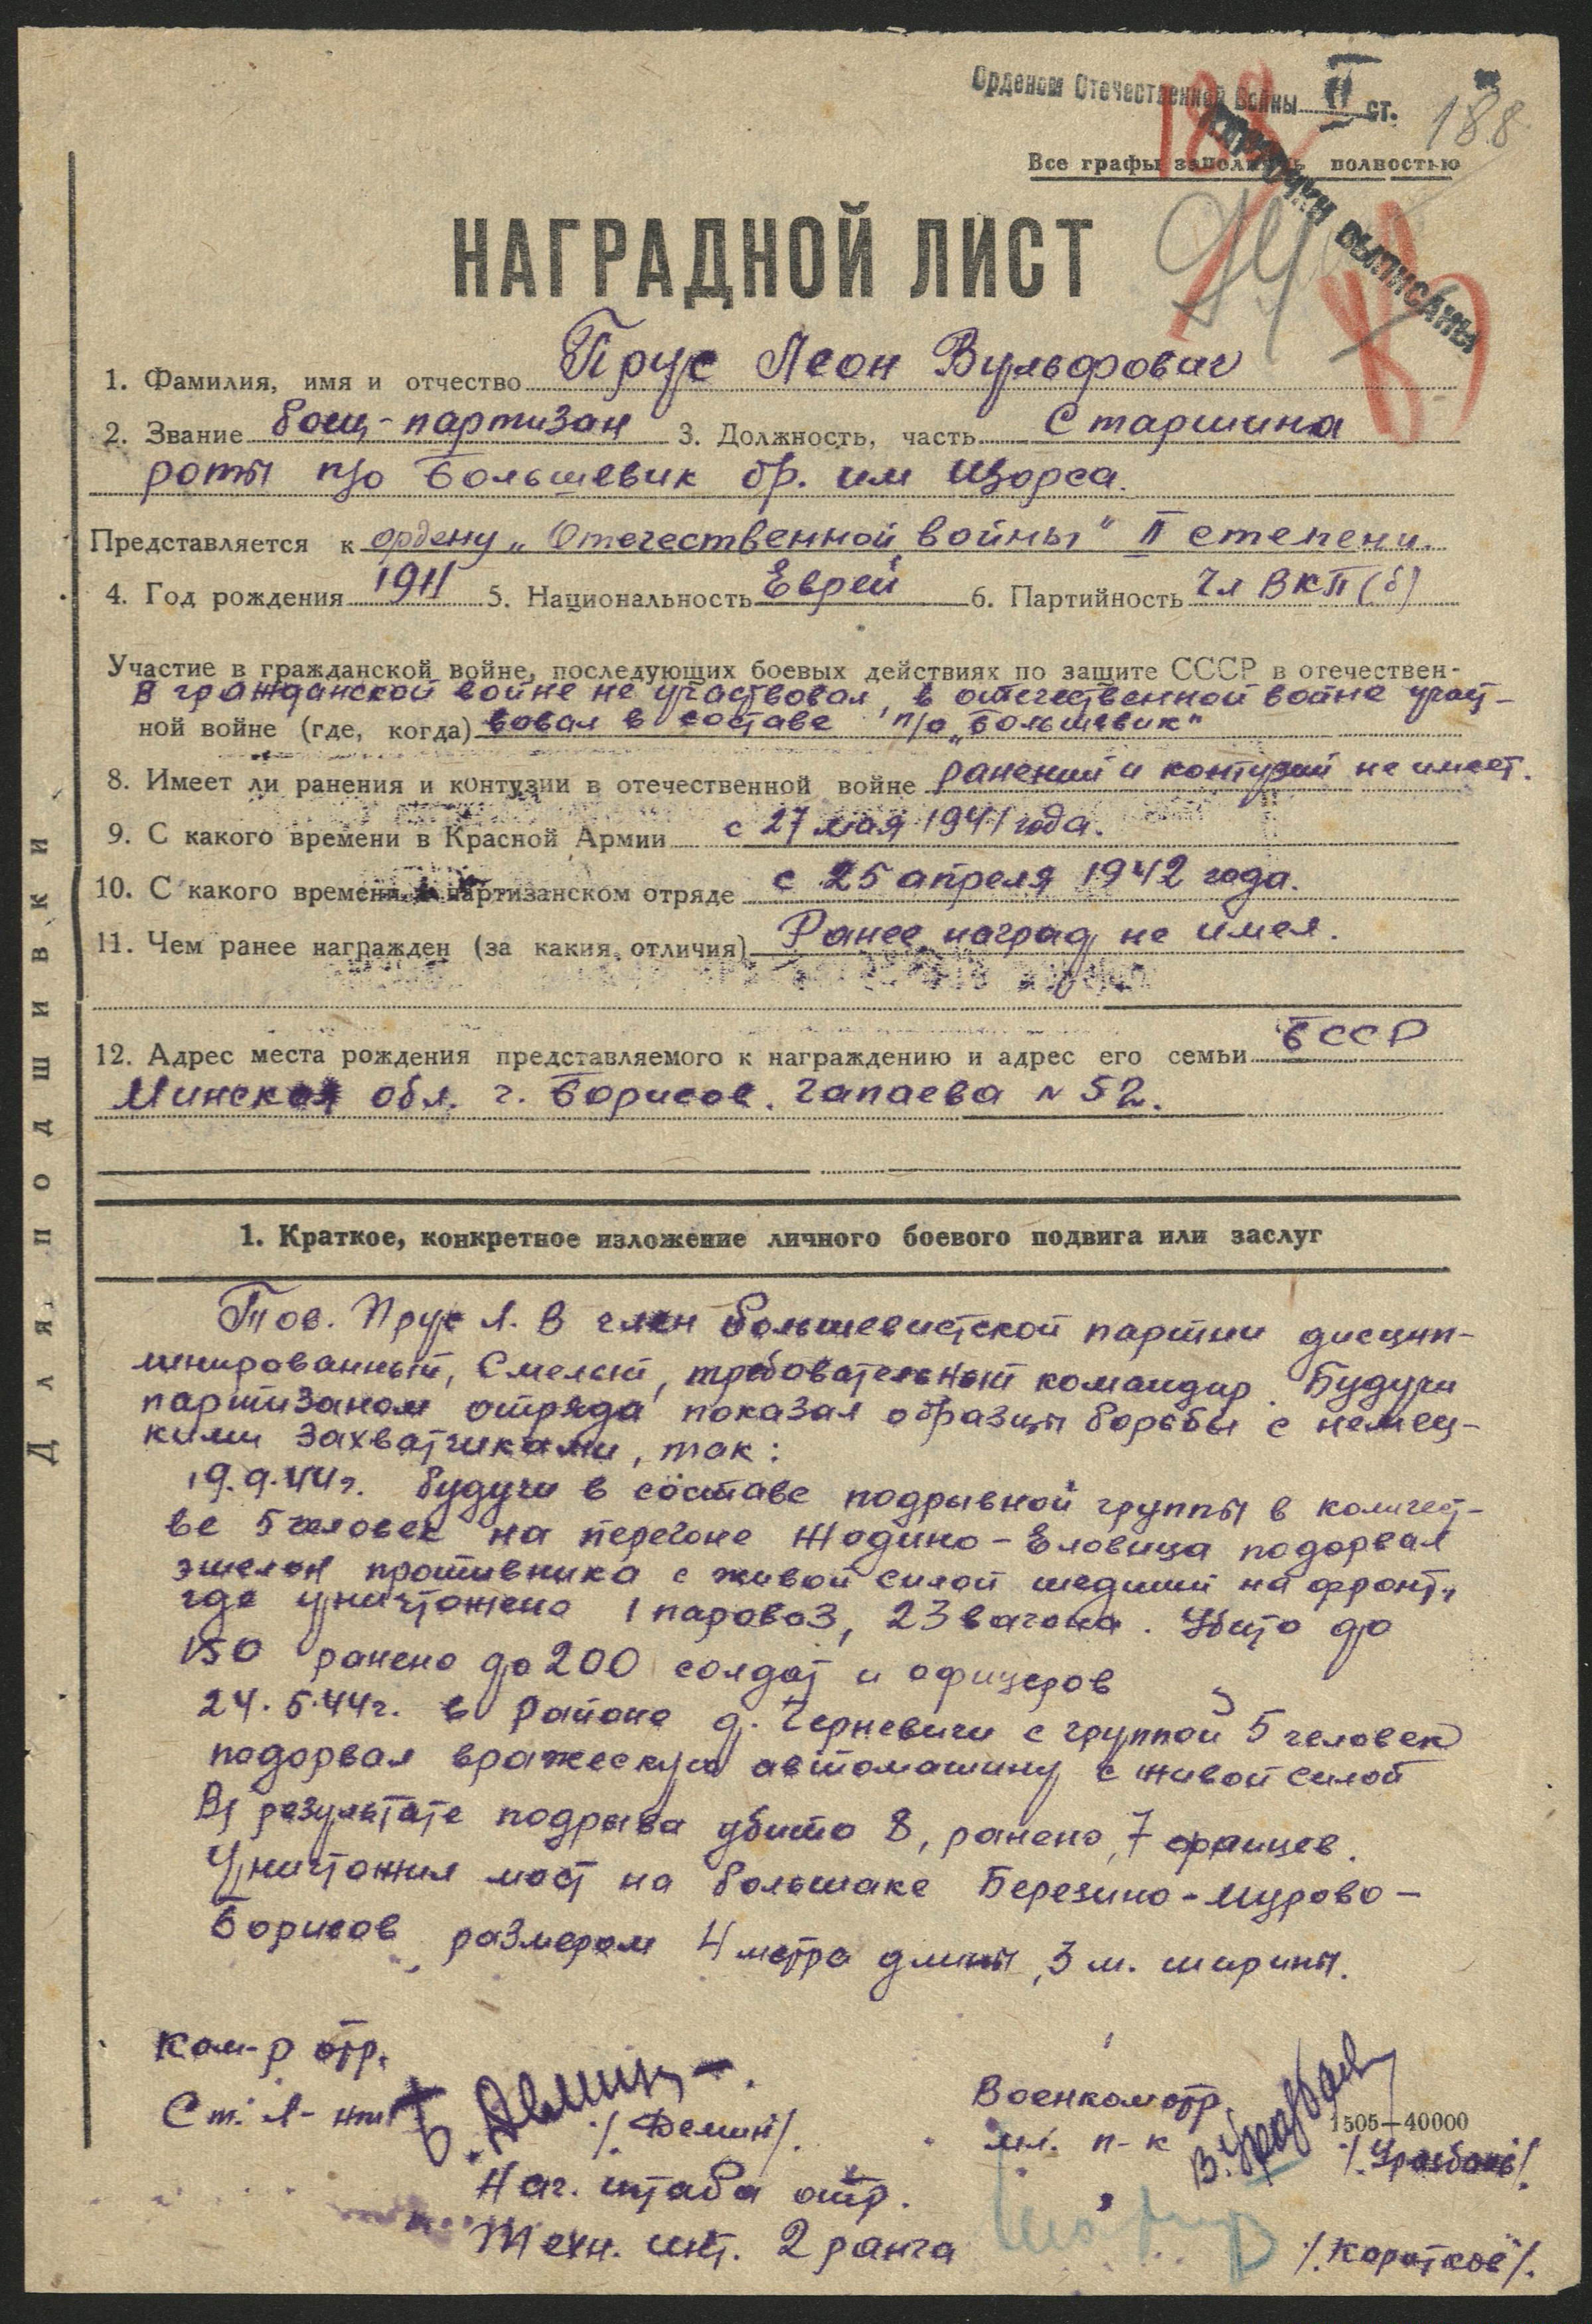 Орденом Отечественной Войны II ст.
188
188
Все графы заполнять полностью
КАРТОЧКИ ВЫПИСАНЫ
НАГРАДНОЙ ЛИСТ
1. Фамилия, имя и отчество Прус Леон Вульфович
2. Звание боец-партизан 3. Должность, часть Старшина
роты п/о Большевик бр. им Щорса.
Представляется к ордену „Отечественной войны" II степени.
4. Год рождения 1911 5. Национальность Еврей 6. Партийность Чл ВКП(б)
Участие в гражданской войне, последующих боевых действиях по защите СССР в отечествен-
В гражданской войне не участвовал, в отечественной войне участ-
ной войне (где, когда) вовал в составе п/о „Большевик"
8. Имеет ли ранения и контузии в отечественной войне ранений и контузий не имеет.
9. С какого времени в Красной Армии с 27 мая 1941 года.
10. С какого времени в партизанском отряде с 25 апреля 1942 года.
11. Чем ранее награжден (за какия отличия) Ранее наград не имел.
12. Адрес места рождения представляемого к награждению и адрес его семьи БССР
Минская обл. г. Борисов. Чапаева N 52.
Для подшивки
1. Краткое, конкретное изложение личного боевого подвига или заслуг
Тов. Прус Л. В член большевистской партии дисцип-
линированный, Смелый, требовательный командир. Будучи
партизаном отряда показал образцы борьбы с немец-
кими захватчиками, так:
19.9.44г. будучи в составе подрывной группы в количест-
ве 5 человек на перегоне Жодино-Еловица подорвал
эшелон противника с живой силой шедший на фронт,
где уничтожено 1 паровоз, 23 вагона. Убито до
150 ранено до 200 солдат и офицеров
24.5.44г. в районе д. Черневичи с группой 5 человек
подорвал вражескую автомашину с живой силой
В результате подрыва убито 8, ранено 7 фрицев.
Уничтожил мост на большаке Березино-Мурово-
Борисов размером 4 метра длины, 3 м. ширины.
Ком-р отр.
Ст. Л-нт /Демин/.
Военком отр.
1505—40000
мл. п-к /Уразбаев/.
Нач. штаба отр.
Техн. инт. 2 ранга /Коротков/.